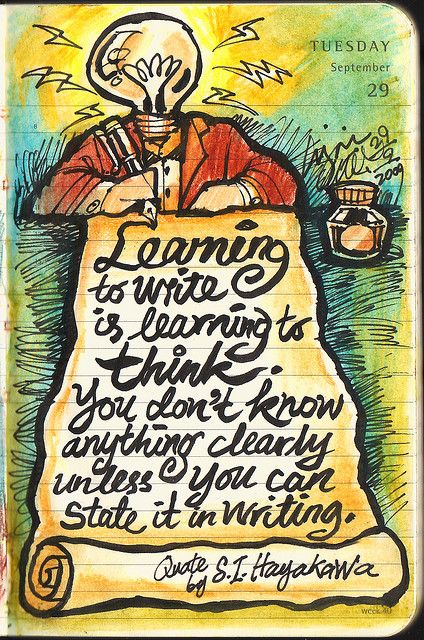 TUESDAY
September
29
29
9
2009
8
Learning
to write
is learning to
think.
You don't know
anything clearly
unless you can
State it in Writing.
Quote
by S.I. Hayakawa
week 40